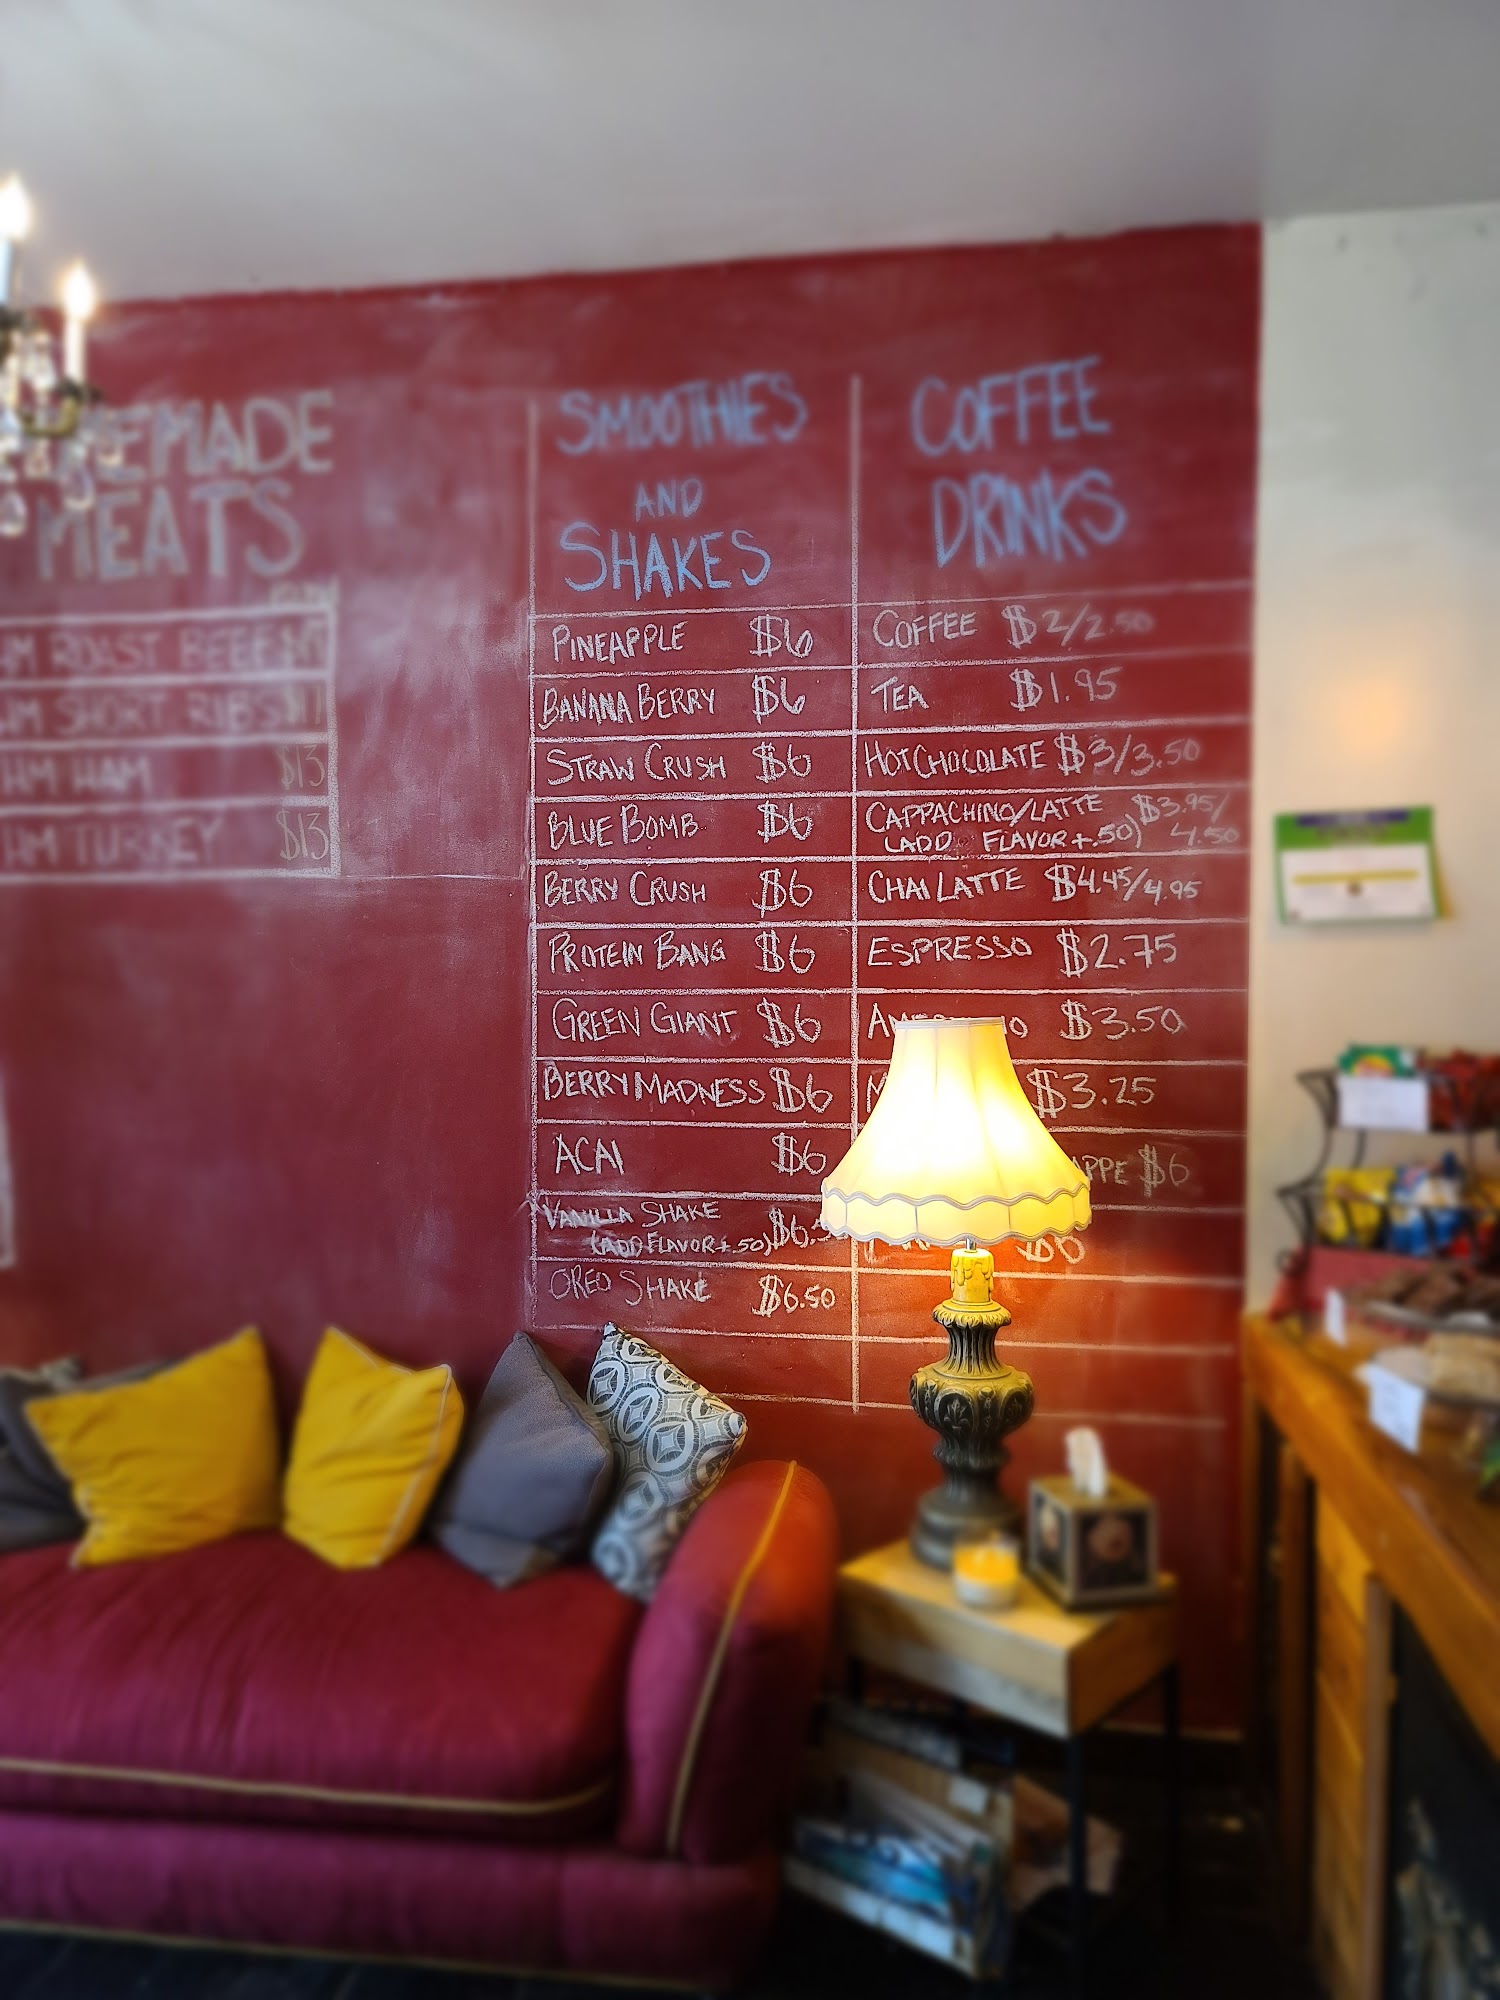 MEMADE
MEATS
HM ROAST BEEF
HM SHORT RIBS $17
HM HAM $13
HM TURKEY $13
SMOOTHIES
AND
SHAKES
PINEAPPLE $6
BANANA BERRY $6
STRAW CRUSH $6
BLUE BOMB $6
BERRY CRUSH $6
PROTEIN BANG $6
GREEN GIANT $6
BERRY MADNESS $6
ACAI $6
VANILLA SHAKE
(ADD FLAVOR +.50) $6.5
OREO SHAKE $6.50
COFFEE
DRINKS
COFFEE $2/2.50
TEA $1.95
HOT CHOCOLATE $3/3.50
CAPPACHINO/LATTE $3.95/
(ADD FLAVOR +.50) 4.50
CHAI LATTE $4.45/4.95
ESPRESSO $2.75
AM NO $3.50
M $3.25
APPE $6